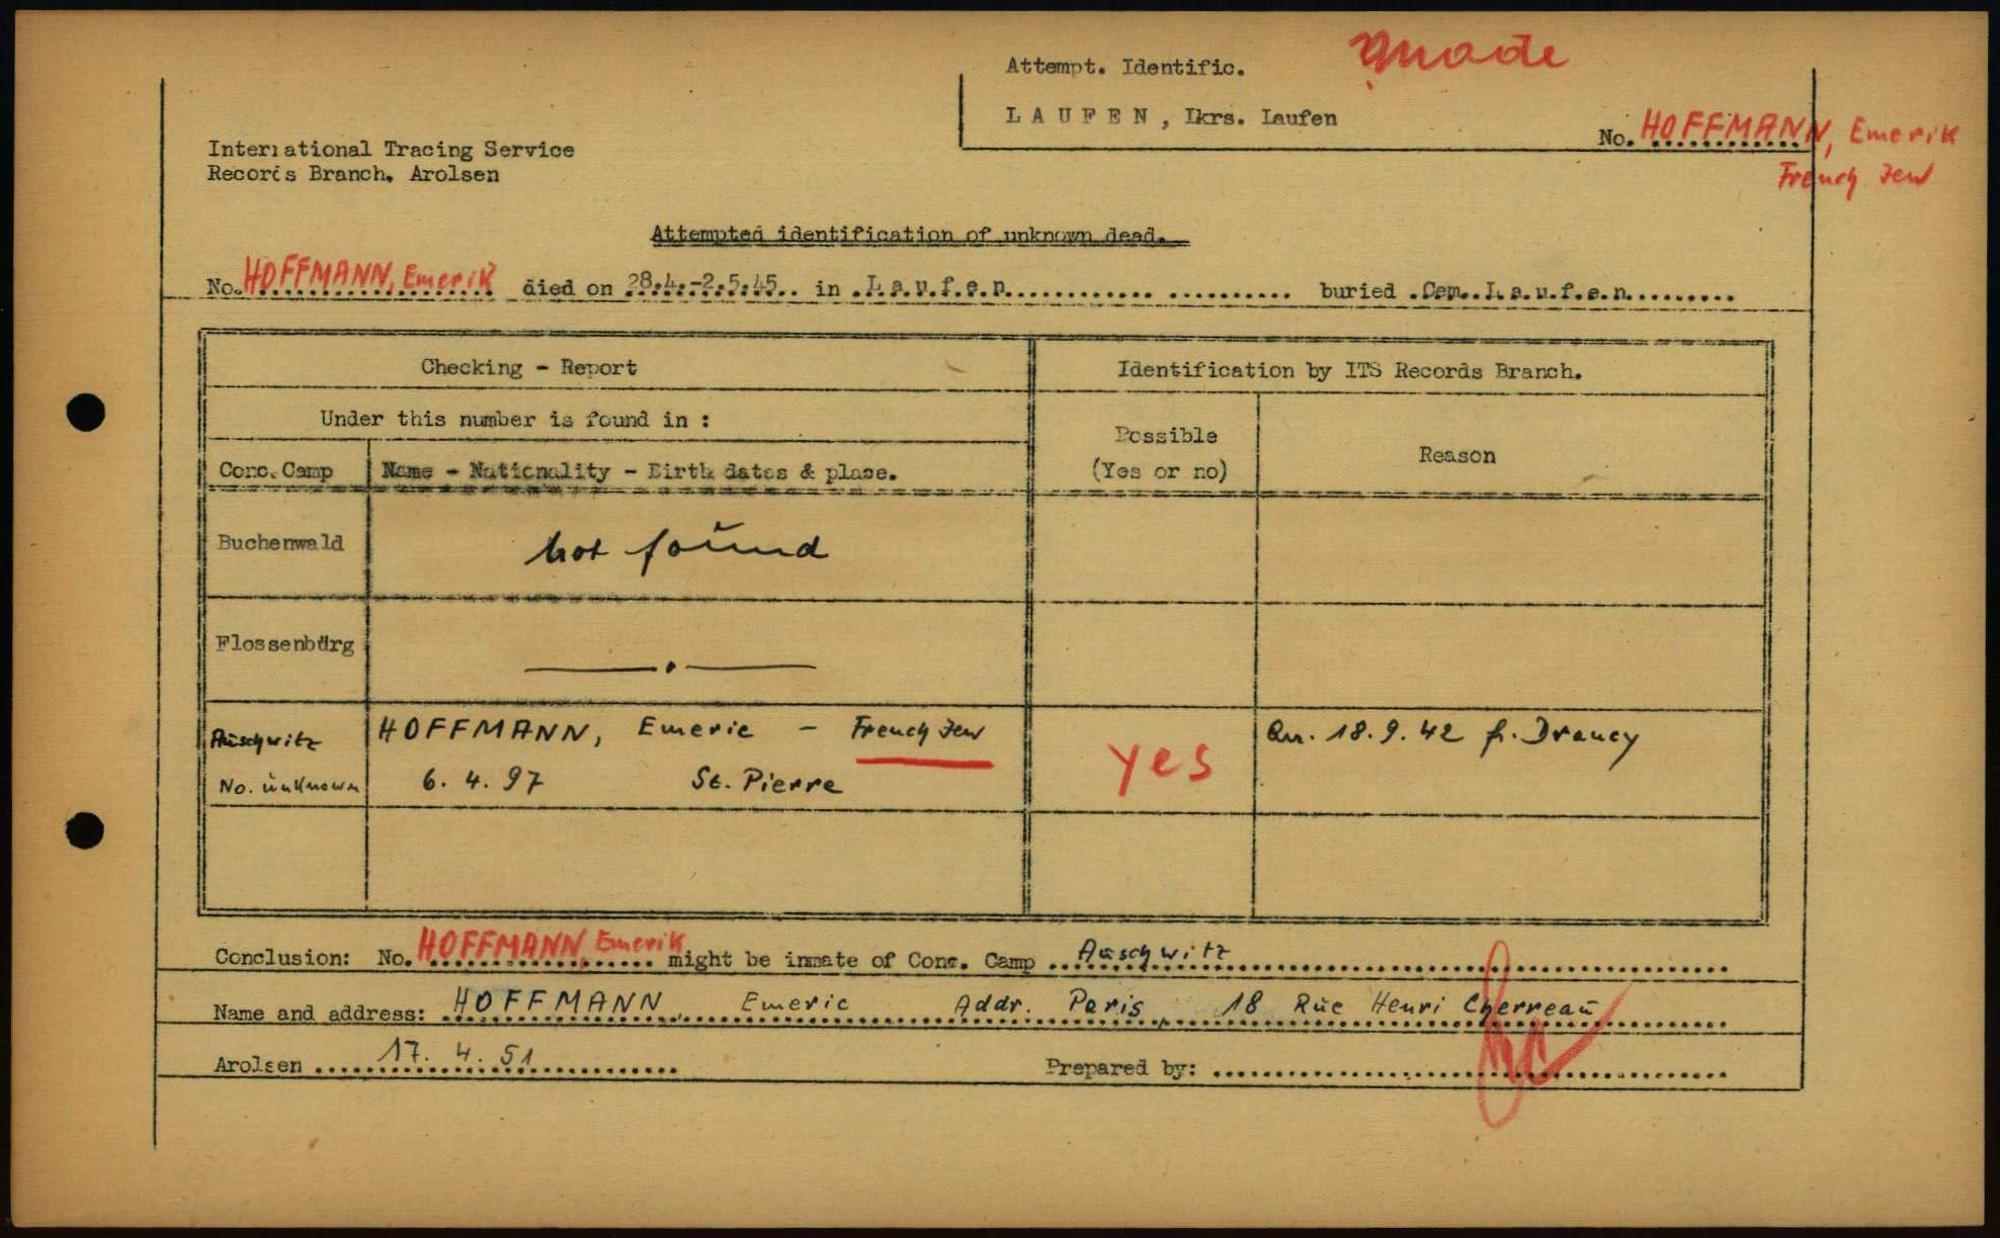 Attempt. Identific. made
L A U F E N , Lkrs. Laufen
No. HOFFMANN, Emerik
French Jew
International Tracing Service
Records Branch, Arolsen
Attempted identification of unknown dead.
No. HOFFMANN, Emerik died on 28.4.-2.5.45. in L.a.u.f.e.n. buried Cem. L.a.u.f.e.n.
Checking - Report
Identification by ITS Records Branch.
Under this number is found in :
Possible
(Yes or no)
Reason
Conc. Camp
Name - Nationality - Birth dates & place.
Buchenwald
not found
Flossenbürg
Auschwitz
No. unknown
HOFFMANN, Emeric - French Jew
6. 4. 97 St. Pierre
yes
18. 9. 42 fr. Drancy
Conclusion: No. HOFFMANN, Emerik might be inmate of Conc. Camp Auschwitz
Name and address: HOFFMANN, Emeric Addr. Paris, 18 Rue Henri Cherreau
Arolsen 17. 4. 51
Prepared by: